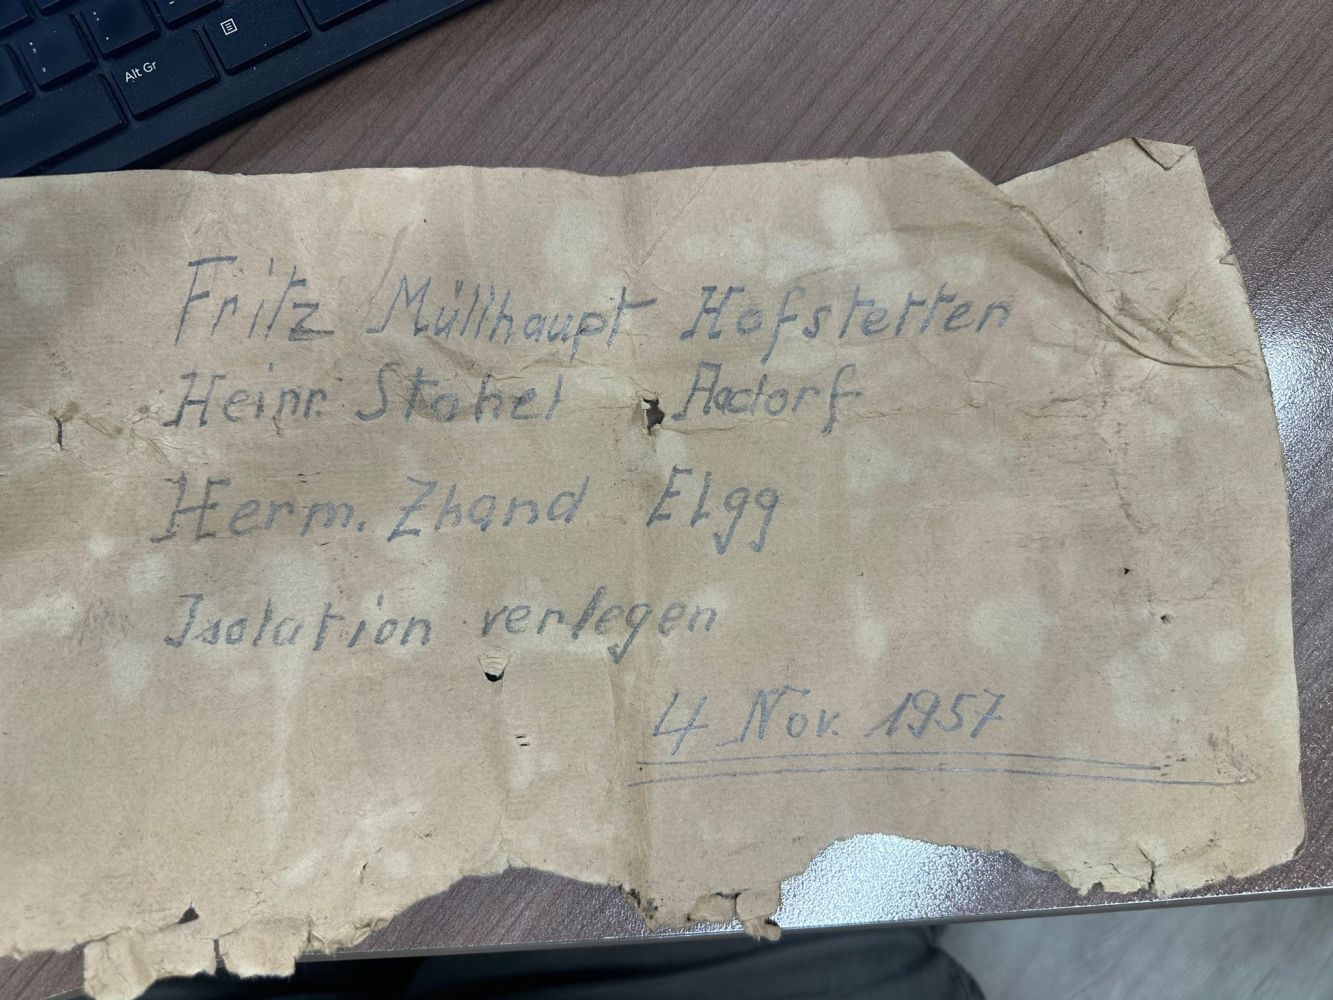 Alt Gr
Fritz Müllhaupt Hofstetten
Heinr. Stahel Aadorf
Herm. Zhand Elgg
Isolation verlegen
4 Nov. 1957